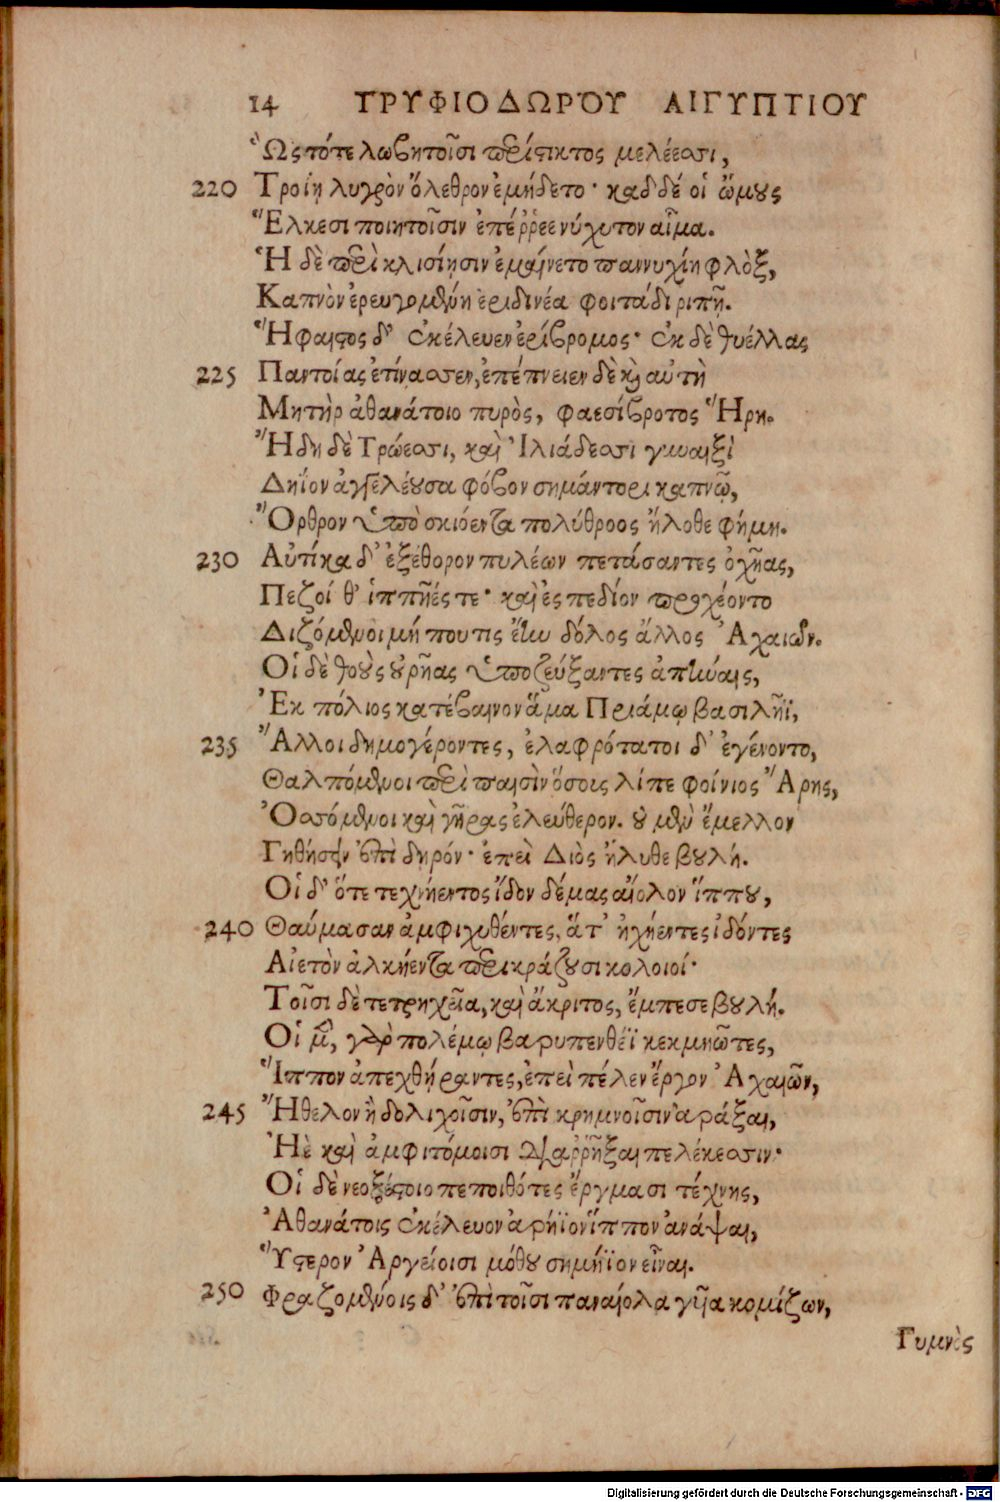 14 ΤΡΥΦΙΟΔΩΡΟΥ ΑΙΓΥΠΤΙΟΥ
Ὣς τότε λωβητοῖσι περίστικτος μελέεσσι,
220 Τροίῃ λυγρὸν ὄλεθρον ἐμήδετο· καδδέ οἱ ὤμους
Ἕλκεσι ποιητοῖσιν ἐπέῤῥεε νήχυτον αἷμα.
Ἡ δὲ περὶ κλισίῃσιν ἐμαίνετο παννυχίη φλὸξ,
Καπνὸν ἐρευγομένη ἐριδινέα φοιτάδι ριπῇ.
Ἥφαιστος δ' ἐκέλευεν ἐρίβρομος· ἐκ δὲ θυέλλας
225 Παντοίας ἐτίνασσεν, ἐπέπνειεν δὲ καὶ αὐτὴ
Μητὴρ ἀθανάτοιο πυρὸς, φαεσίβροτος Ἥρη.
Ἤδη δὲ Τρώεσσι, καὶ Ἰλιάδεσσι γυναιξὶ
Δηΐον ἀγγελέουσα φόβον σημάντορι καπνῷ,
Ὄρθρον ὑπὸ σκιόεντα πολύθροος ἤλυθε φήμη.
230 Αὐτίκα δ' ἐξέθορον πυλέων πετάσαντες ὀχῆας,
Πεζοί θ' ἱππῆές τε· καὶ ἐς πεδίον προχέοντο
Διζόμενοι μή που τις ἔην δόλος ἄλλος Ἀχαιῶν.
Οἱ δὲ θοὺς οὐρῆας ὑποζεύξαντες ἀπήναις,
Ἐκ πόλιος κατέβαινον ἅμα Πριάμῳ βασιλῆϊ,
235 Ἄλλοι δημογέροντες, ἐλαφρότατοι δ' ἐγένοντο,
Θαλπόμενοι περὶ παισὶν ὅσους λίπε φοίνιος Ἄρης,
Ὀσσόμενοι καὶ γῆρας ἐλεύθερον. οὐ μὲν ἔμελλον
Γηθήσειν ἐπὶ δηρόν· ἐπεὶ Διὸς ἤλυθε βουλή.
Οἱ δ' ὅτε τεχνήεντος ἴδον δέμας αἰόλον ἵππου,
240 Θαύμασαν ἀμφιχυθέντες, ἅτ' ἠχήεντες ἰδόντες
Αἰετὸν ἀλκήεντα περικράζουσι κολοιοί·
Τοῖσι δὲ τετρηχεῖα, καὶ ἄκριτος, ἔμπεσε βουλή.
Οἱ μὲν, γὰρ πολέμῳ βαρυπενθέϊ κεκμηῶτες,
Ἵππον ἀπεχθήραντες, ἐπεὶ πέλεν ἔργον Ἀχαιῶν,
245 Ἤθελον ἢ δολιχοῖσιν, ἐπὶ κρημνοῖσιν ἀράξαι,
Ἠὲ καὶ ἀμφιτόμοισι διαῤῥῆξαι πελέκεσσιν·
Οἱ δὲ νεοξέστοιο πεποιθότες ἔργμασι τέχνης,
Ἀθανάτοις ἐκέλευον ἀρήϊον ἵππον ἀνάψαι,
Ὕστερον Ἀργείοισι μόθου σημήϊον εἶναι.
250 Φραζομένοις δ' ἐπὶ τοῖσι παναίολα γυῖα κομίζων,
Γυμνὸς
Digitalisierung gefördert durch die Deutsche Forschungsgemeinschaft - DFG